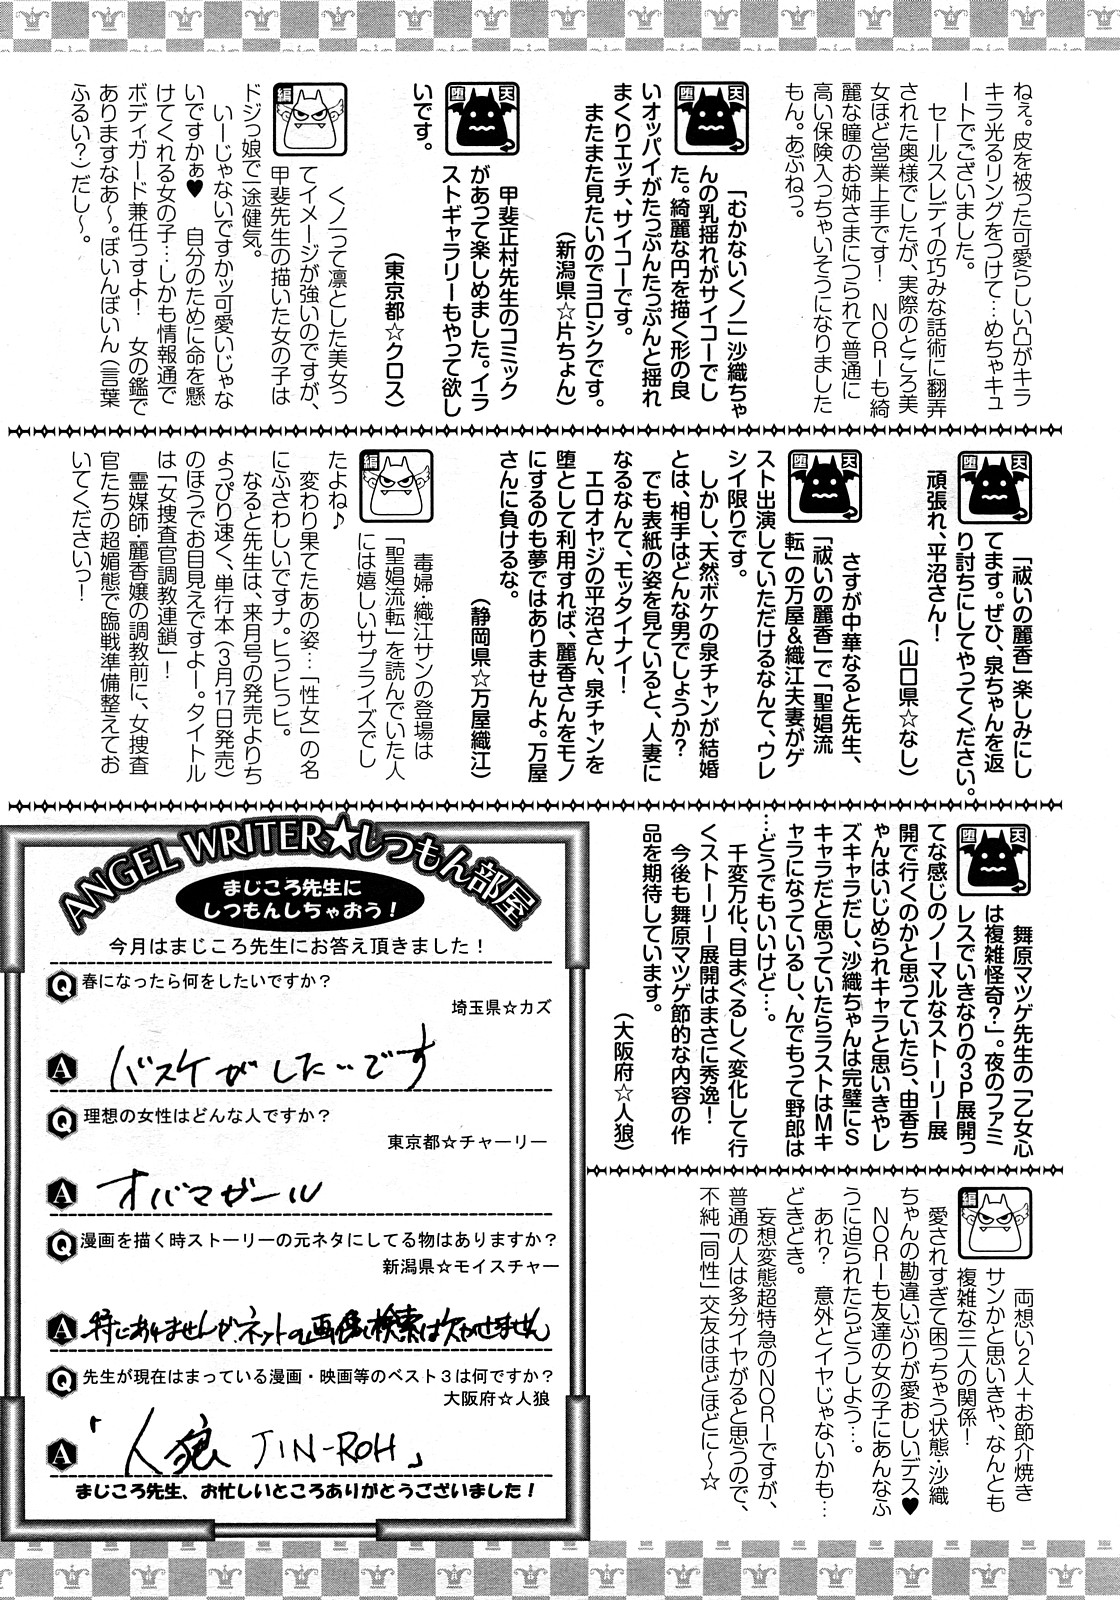 ねぇ。皮を被った可愛らしい凸がキラ
キラ光るリングをつけて…めちゃキュ
ートでございました。
セールスレディの巧みな話術に翻弄
された奥様でしたが、実際のところ美
女ほど営業上手です！　NORIも綺
麗な瞳のお姉さまにつられて普通に
高い保険入っちゃいそうになりました
もん。あぶねっ。
天
堕
「むかないくノ一」沙織ちゃ
んの乳揺れがサイコーでし
た。綺麗な円を描く形の良
いオッパイがたっぷんたっぷんと揺れ
まくりエッチ、サイコーです。
またまた見たいのでヨロシクです。
（新潟県☆片ちょん）
天
堕
甲斐正村先生のコミック
があって楽しめました。イラ
ストギャラリーもやって欲し
いです。
（東京都☆クロス）
編
くノ一って凛とした美女っ
てイメージが強いのですが、
甲斐先生の描いた女の子は
ドジっ娘で一途健気。
いーじゃないですかッ可愛いじゃな
いですかぁ♥　自分のために命を懸
けてくれる女の子…しかも情報通で
ボディガード兼任っすよ！　女の鑑で
ありますなあ～。ぼいんぼいん（言葉
ふるい？）だし～。
天
堕
「祓いの麗香」楽しみにし
てます。ぜひ、泉ちゃんを返
り討ちにしてやってください。
頑張れ、平沼さん！
（山口県☆なし）
天
堕
さすが中華なると先生、
「祓いの麗香」で「聖娼流
転」の万屋&織江夫妻がゲ
スト出演していただけるなんて、ウレ
シイ限りです。
しかし、天然ボケの泉チャンが結婚
とは、相手はどんな男でしょうか？
でも表紙の姿を見ていると、人妻に
なるなんて、モッタイナイ！
エロオヤジの平沼さん、泉チャンを
堕として利用すれば、麗香さんをモノ
にするのも夢ではありませんよ。万屋
さんに負けるな。
（静岡県☆万屋織江）
編
毒婦・織江サンの登場は
「聖娼流転」を読んでいた人
には嬉しいサプライズでし
たよね♪
変わり果てたあの姿…「性女」の名
にふさわしいですナ。ヒっヒっヒ。
なると先生は、来月号の発売よりち
ょっぴり速く、単行本（3月17日発売）
のほうでお目見えですよー。タイトル
は「女捜査官調教連鎖」！
霊媒師・麗香嬢の調教前に、女捜査
官たちの超媚態で臨戦準備整えてお
いてくださいっ！
天
堕
舞原マツゲ先生の「乙女心
は複雑怪奇？」。夜のファミ
レスでいきなりの3P展開っ
てな感じのノーマルなストーリー展
開で行くのかと思っていたら、由香ち
ゃんはいじめられキャラと思いきやレ
ズキャラだし、沙織ちゃんは完璧にS
キャラだと思っていたらラストはMキ
ャラになっているし、んでもって野郎は
…どうでもいいけど…。
千変万化、目まぐるしく変化して行
くストーリー展開はまさに秀逸！
今後も舞原マツゲ節的な内容の作
品を期待しています。
（大阪府☆人狼）
編
両想い2人+お節介焼き
サンかと思いきや、なんとも
複雑な三人の関係！
愛されすぎて困っちゃう状態・沙織
ちゃんの勘違いぶりが愛おしいデス♥
NORIも友達の女の子にあんなふ
うに迫られたらどうしよう…。
あれ？　意外とイヤじゃないかも…
どきどき。
妄想変態超特急のNORIですが、
普通の人は多分イヤがると思うので、
不純「同性」交友はほどほどに～☆
ANGEL WRITER★しつもん部屋
まじころ先生に
しつもんしちゃおう！
今月はまじころ先生にお答え頂きました！
Q 春になったら何をしたいですか？
埼玉県☆カズ
A バスケがしたいです
Q 理想の女性はどんな人ですか？
東京都☆チャーリー
A オバマガール
Q 漫画を描く時ストーリーの元ネタにしてる物はありますか？
新潟県☆モイスチャー
A 特にありませんが、ネットの画像検索は欠かせません
Q 先生が現在はまっている漫画・映画等のベスト3は何ですか？
大阪府☆人狼
A 「人狼 JIN-ROH」
まじころ先生、お忙しいところありがとうございました！